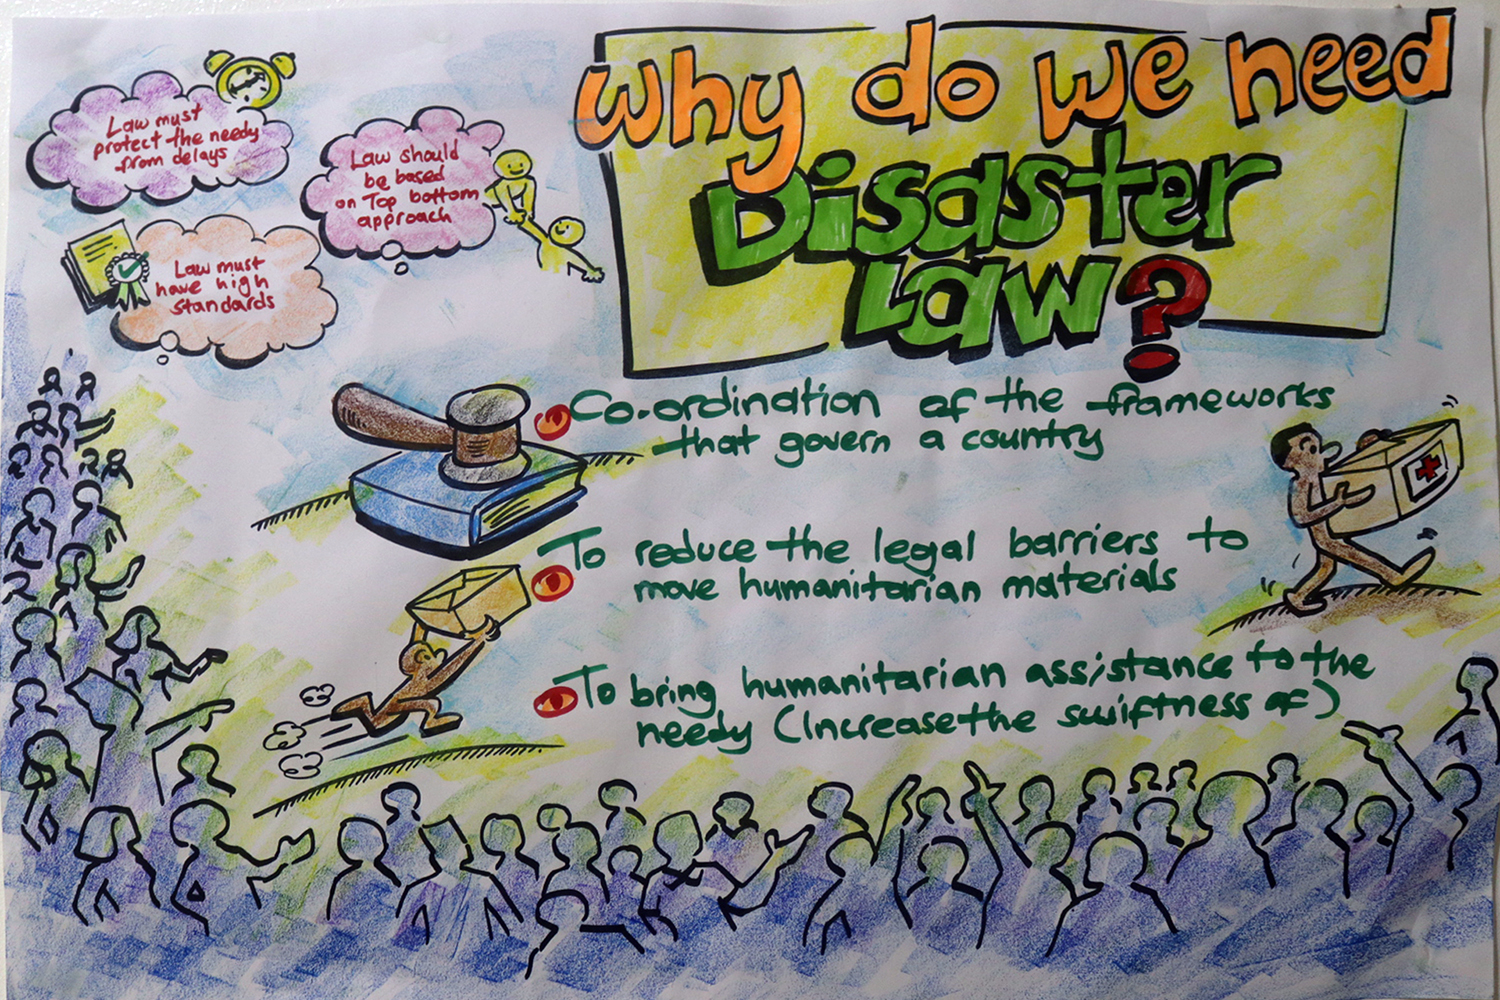 Why do we need
Disaster
Law?
Law must
protect the needy
from delays
Law should
be based
on Top bottom
approach
Law must
have high
standards
Co-ordination of the frameworks
that govern a country
To reduce the legal barriers to
move humanitarian materials
To bring humanitarian assistance to the
needy (Increase the swiftness of)